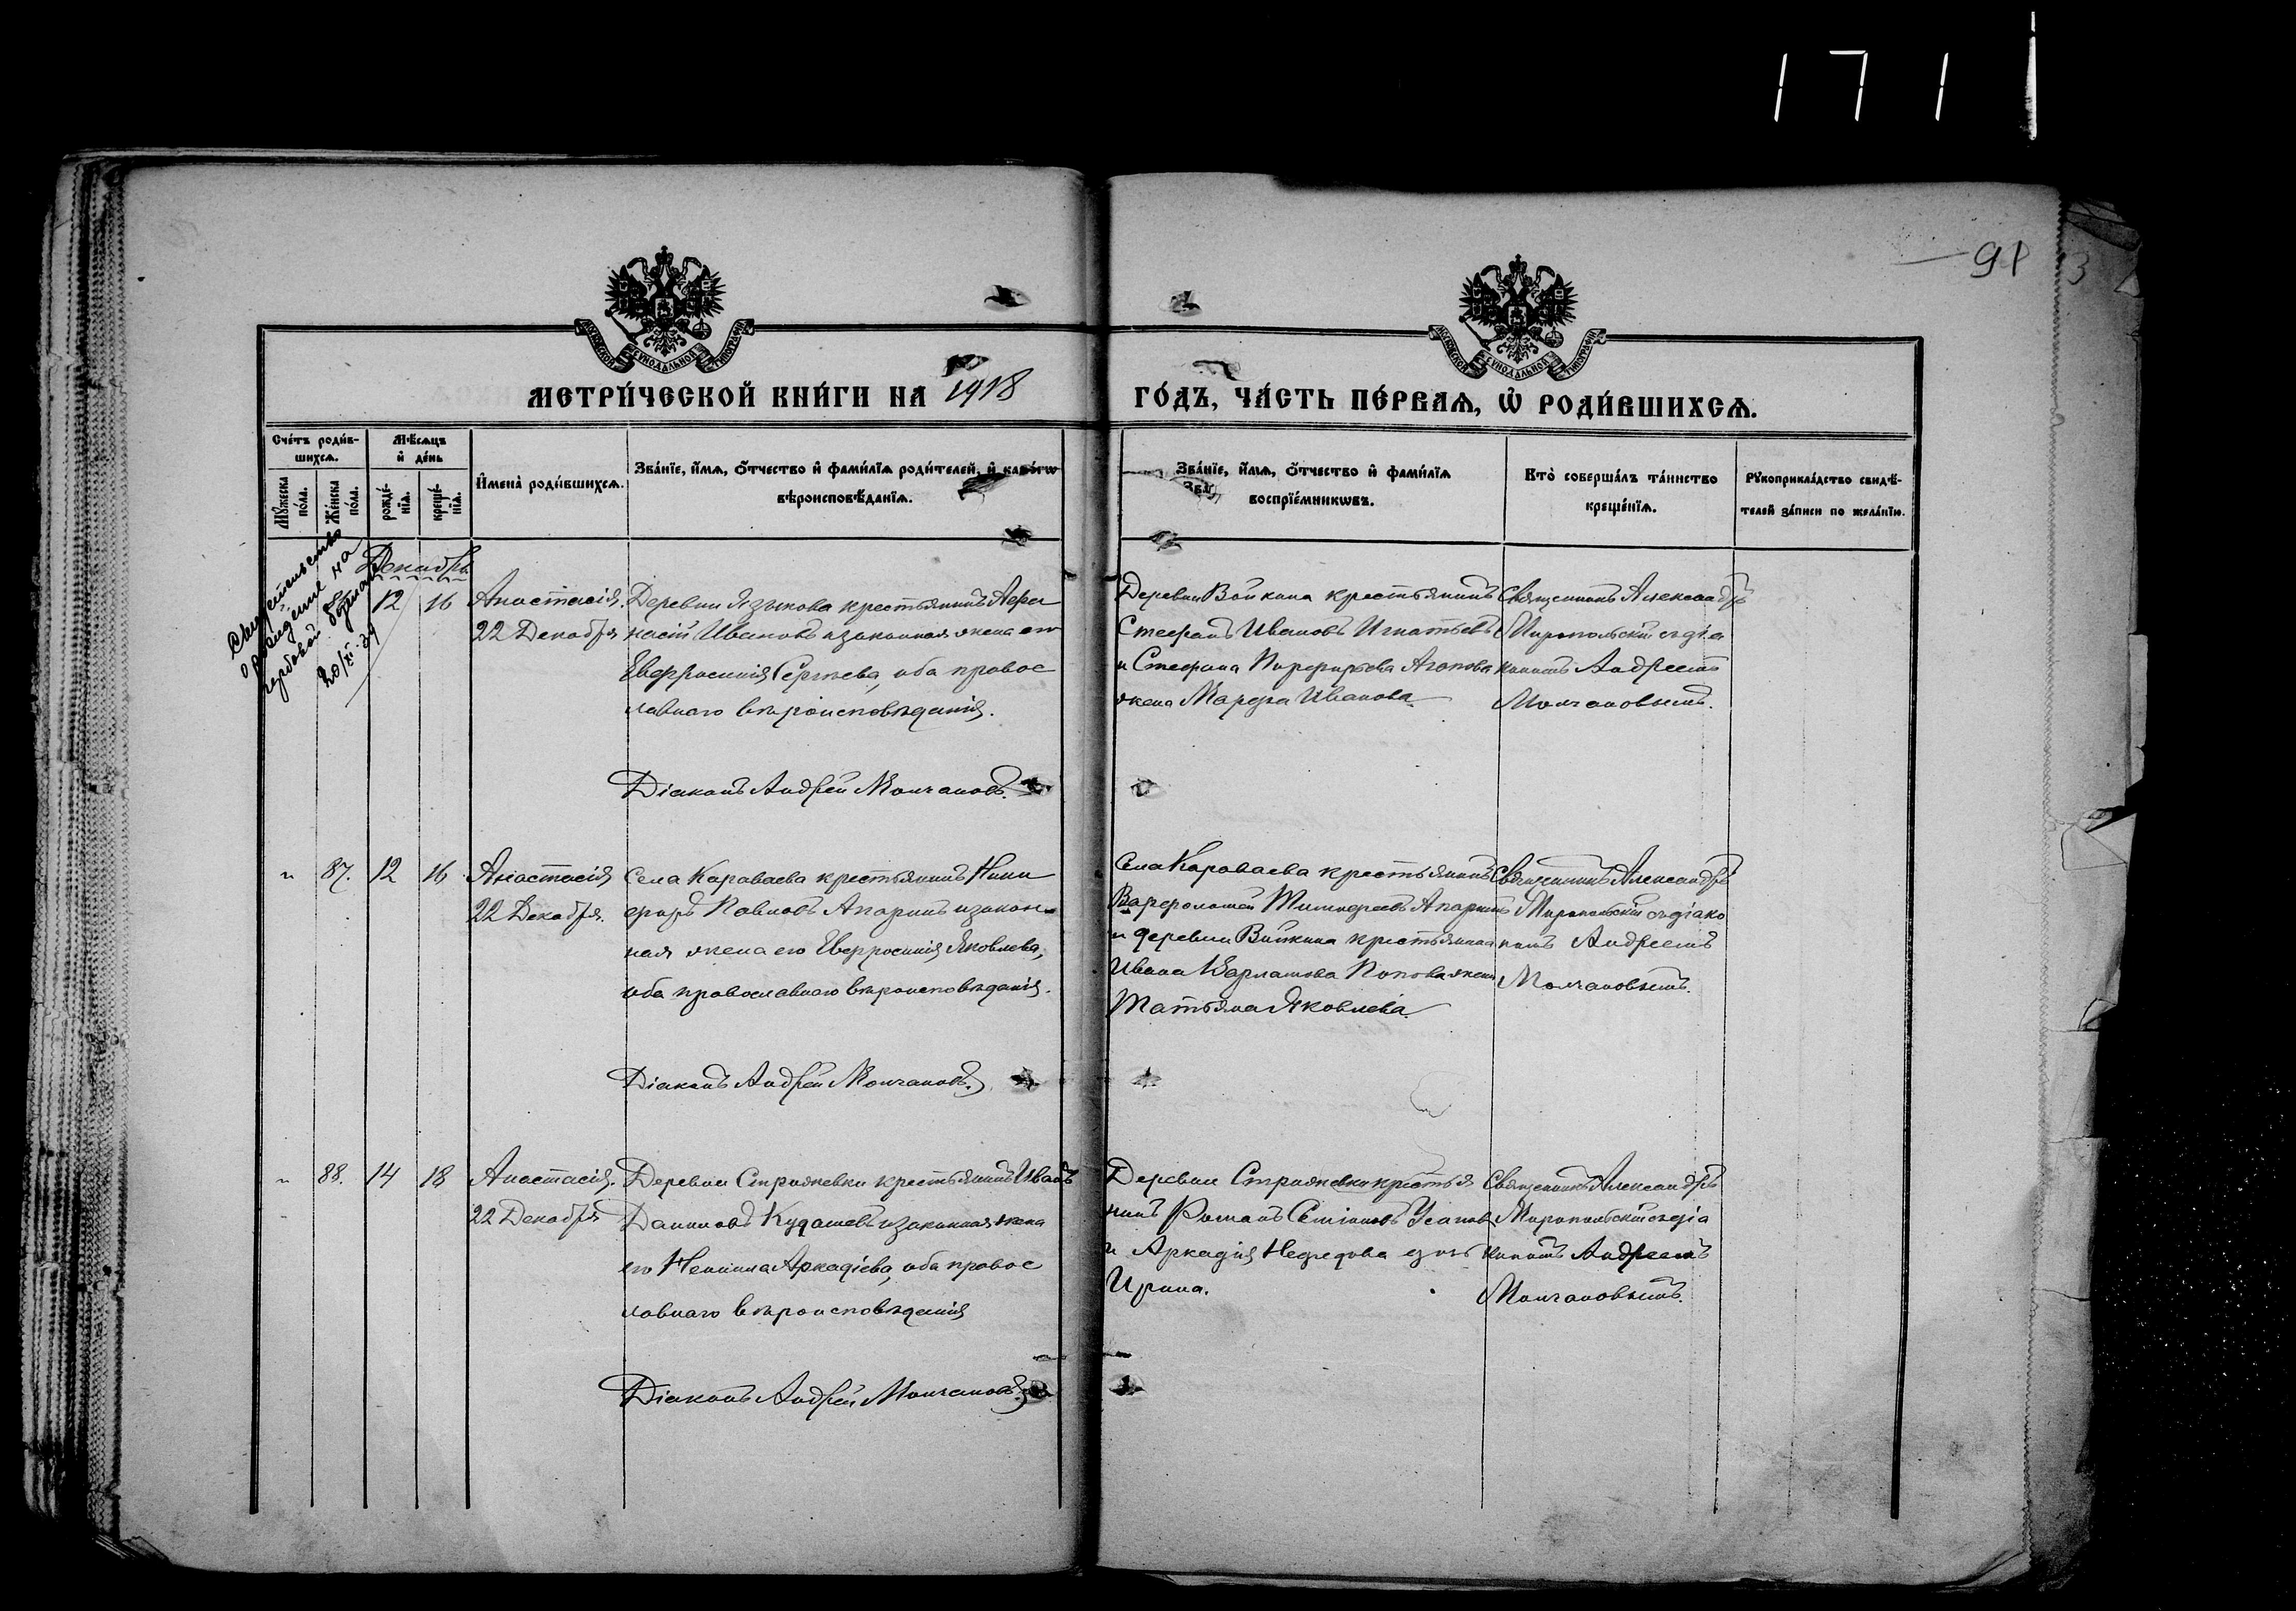 1711
91
3
МОСКОВСКОЙ СУНОДАЛЬНОЙ ТИПОГРАФІИ
МОСКОВСКОЙ СУНОДАЛЬНОЙ ТИПОГРАФІИ
МЕТРИ́ЧЕСКОЙ КНИ́ГИ НА 1918
ГО́ДЪ, ЧА́СТЬ ПЕ́РВАѦ, Ѡ҆ РОДИ́ВШИХСѦ.
Сче́тъ роди́в-
шихсѧ.
Мꙋ́жеска по́ла.
Же́нска по́ла.
Мѣ́сѧцъ
и҆ де́нь
рожде́-
нїѧ.
креще́-
нїѧ.
И҆мена̀ роди́вшихсѧ.
Зва́нїе, и҆́мѧ, ѻ҆́тчество и҆ фами́лїѧ роди́телей, и҆ како́гѡ
вѣроисповѣ́данїѧ.
Зва́нїе, и҆́мѧ, ѻ҆́тчество и҆ фами́лїѧ
воспрїе́мникѡвъ.
Кто̀ соверша́лъ та́инство
креще́нїѧ.
Рꙋкоприкла́дство свидѣ́-
телей за́писи по жела́нїю.
Свидетельство
о рождении на
гербовой бумаге
20/XI-34
Декабрь
12 16 Анастасія.
22 Декабря
Деревни Языкова крестьянинъ Афа
насій Ивановъ и законная жена его
Евфросинія Сергѣева, оба правос
лавнаго вѣроисповѣданія.
Діаконъ Андрей Молчановъ.
Деревни Войкина крестьянинъ
Стефанъ Ивановъ Игнатьевъ
и Стефана Порфирьева Агапова
жена Марфа Иванова
Священникъ Александръ
Миропольскій съ діа
кономъ Андреемъ
Молчановымъ.
" 87. 12 16 Анастасія
22 Декабря.
Села Караваева крестьянинъ Ники
форъ Павловъ Апаринъ и закон-
ная жена его Евфросинія Яковлева,
оба православнаго вѣроисповѣданія.
Діаконъ Андрей Молчановъ.
Села Караваева крестьянинъ
Варфоломей Тимофеевъ Апаринъ
и деревни Войкина крестьянина
Ивана Варламова Попова жена
Татьяна Яковлева.
Священникъ Александръ
Миропольскій съ діако
номъ Андреемъ
Молчановымъ.
" 88. 14 18 Анастасія.
22 Декабря
Деревни Стрижевки крестьянинъ Иванъ
Даниловъ Кудашевъ и законная жена
его Неонила Аркадіева, оба правос
лавнаго вѣроисповѣданія
Діаконъ Андрей Молчановъ
Деревни Стрижевки крестья
нинъ Романъ Семіоновъ Усановъ
и Аркадія Нефедова дочь
Ирина.
Священникъ Александръ
Миропольскій съ діа
кономъ Андреемъ
Молчановымъ.